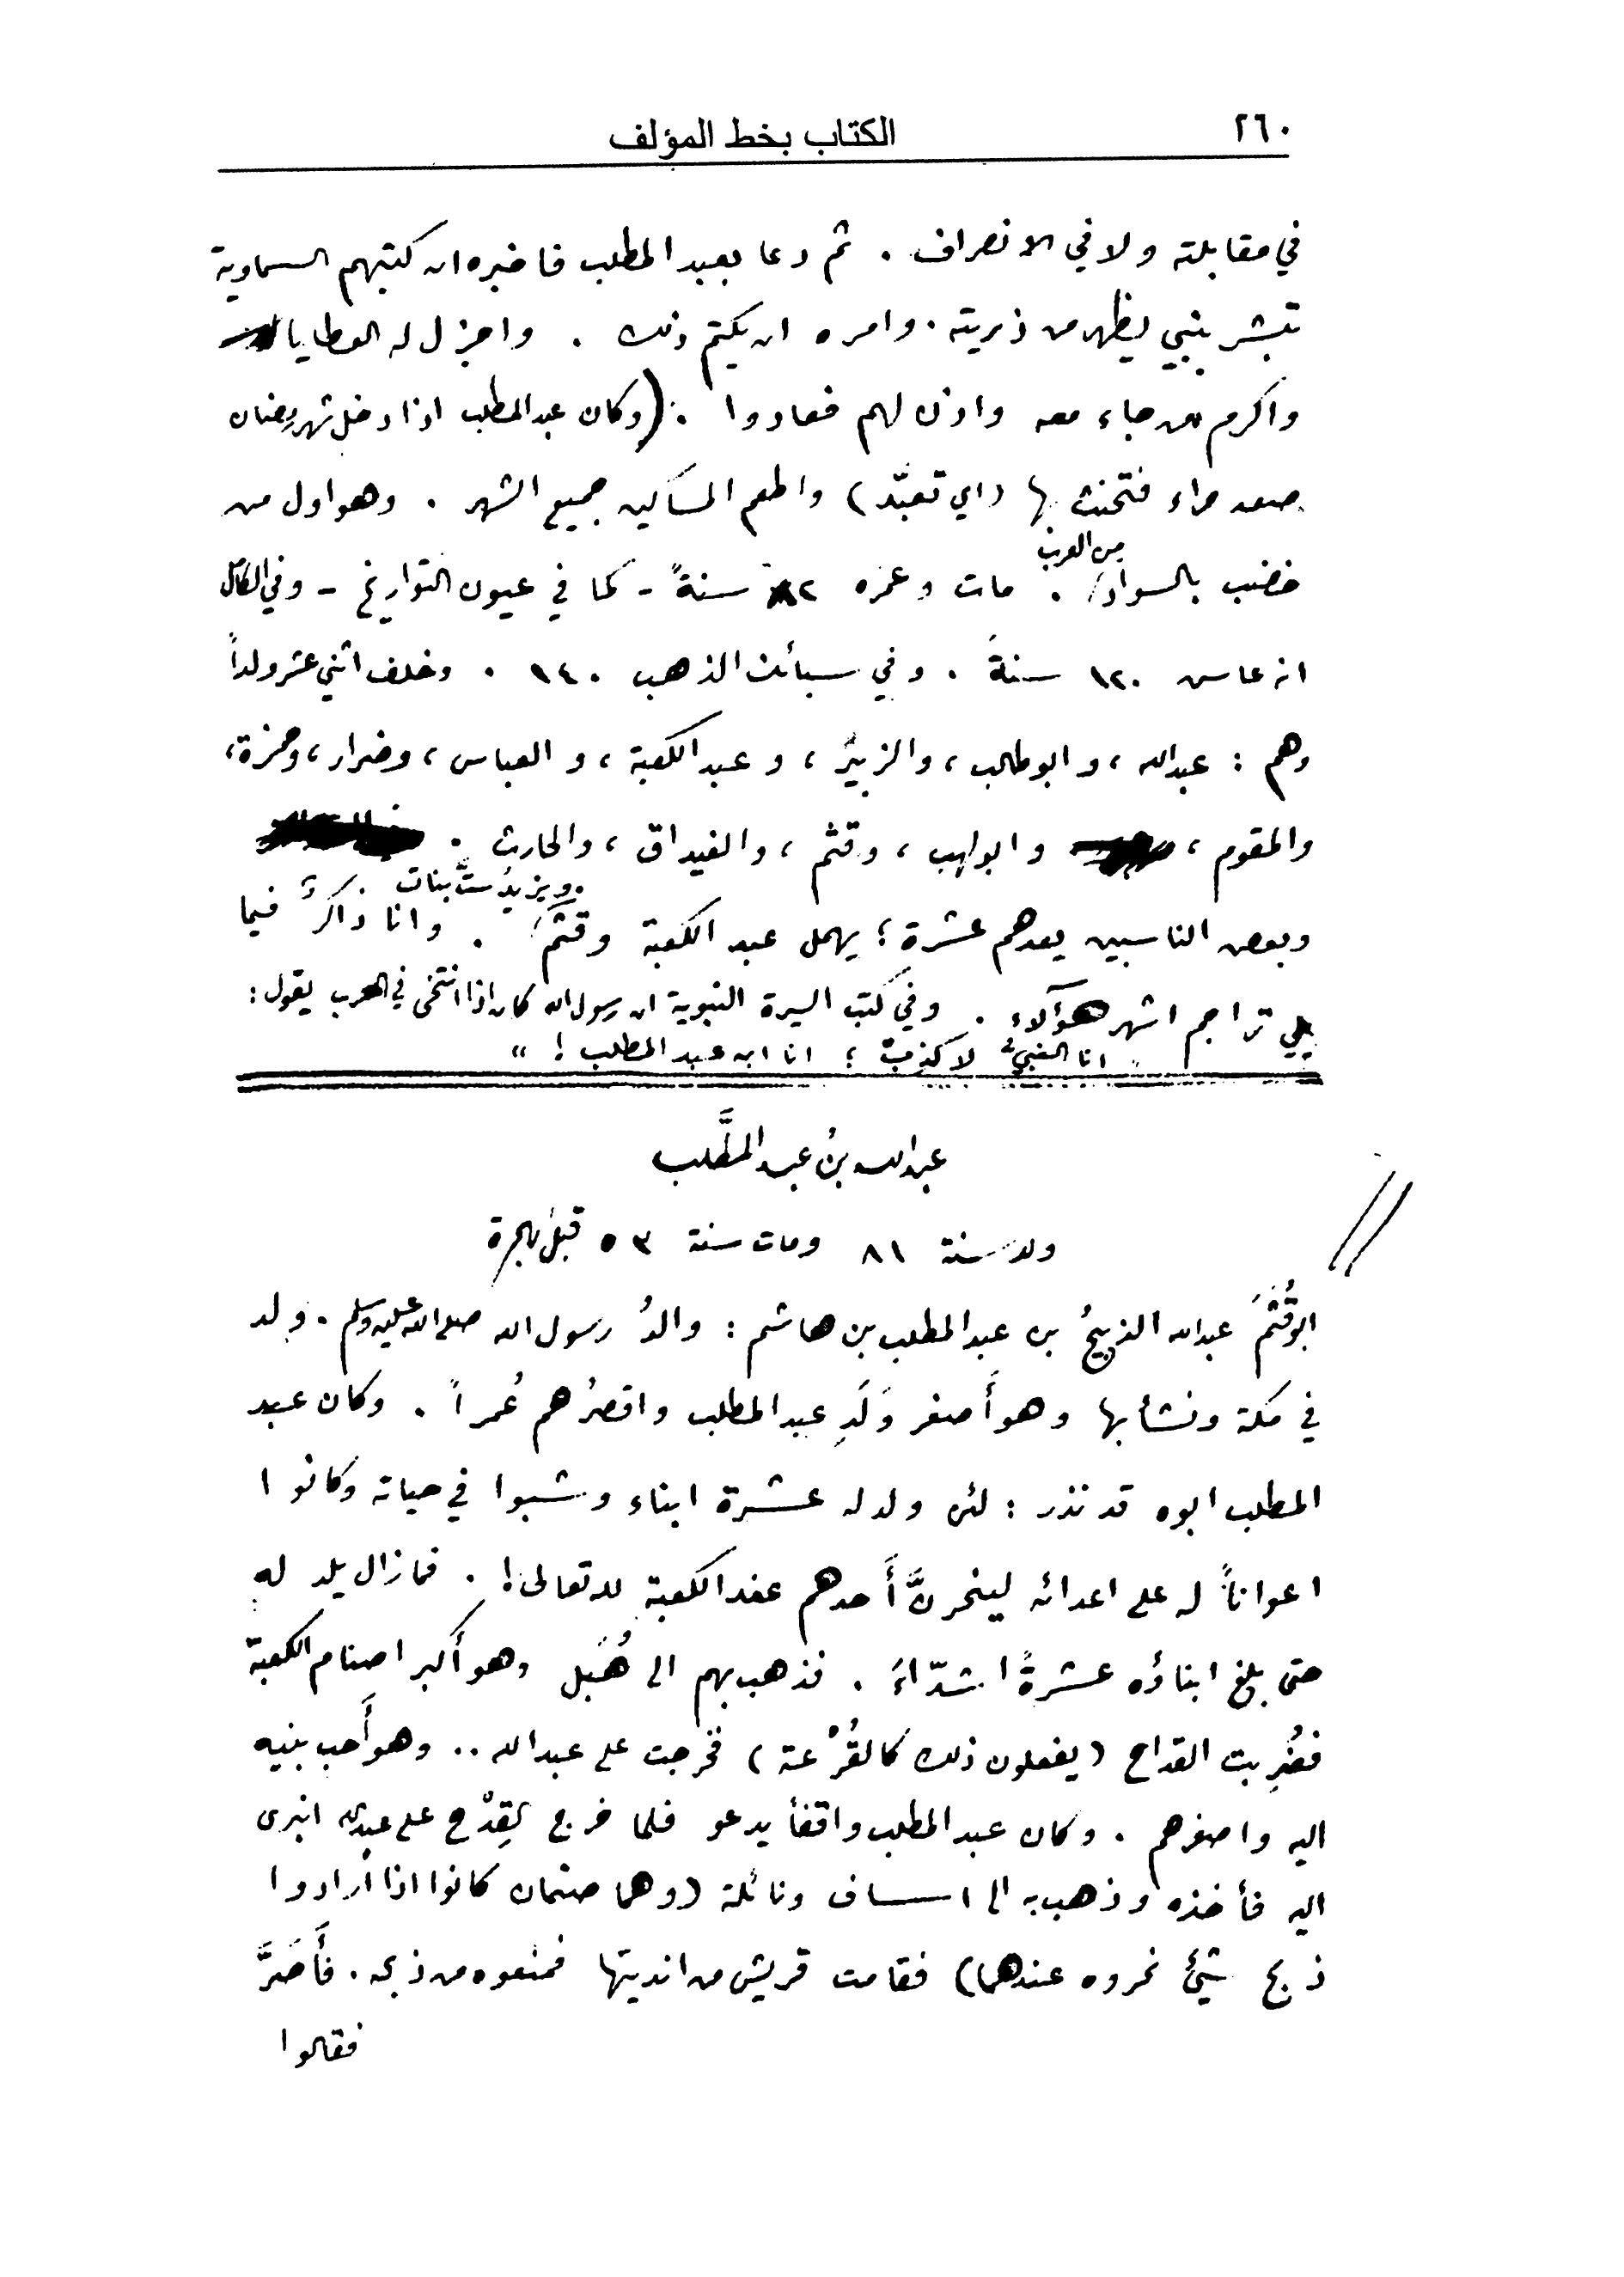 ٢٦٠
الكتاب بخط المؤلف
في مقابلته ولا في الانصراف . ثم دعا بعبد المطلب فاخبره ان كتبهم السماوية
تبشر بنبي يظهر من ذريته . وامره ان يكتم ذلك . واجزل له العطايا
واكرم من جاء معه واذن لهم فعادوا . (وكان عبد المطلب اذا دخل شهر رمضان
صعد حراء فتحنث بها (اي تعبّد) واطعم المساكين جميع الشهر . وهو اول من
من العرب
خضب بالسواد . مات وعمره ٨٢ سنةً - كما في عيون التواريخ - وفي الكامل
انه عاش ١٢٠ سنةً . وفي سبائك الذهب ١٤٠ . وخلف اثني عشر ولداً
وهم : عبدالله ، وابو طالب ، والزبيرُ ، وعبد الكعبة ، والعباس ، وضرار ، وحمزة ،
والمقوم ، وابو لهب ، وقثم ، والغيداق ، والحارث .
ويزيدُ ستَّ بنات
وبعض الناسبين يعدهم عشرة ؛ يهمل عبد الكعبة وقثَمَ . وانا ذاكرٌ فيما
يلي تراجم اشهر هؤلاء . وفي كتب السيرة النبوية ان رسول الله كان اذا انتخى في الحرب يقول :
" انا النبيُّ لا كذب ؛ انا ابن عبد المطلب ! "
عبدالله بنُ عبد المطَّلب
ولد سنة ٨١ ومات سنة ٥٣ قبل الهجرة
ابو قُثَمَ عبدالله الذبيحُ بن عبد المطلب بن هاشم : والدُ رسول الله صلى الله عليه وسلم . ولد
في مكة ونشأ بها وهو أَصغر وَلَدِ عبد المطلب واقصرُهم عُمراً . وكان عبد
المطلب ابوه قد نذر : لئن ولد له عشرة ابناء وشبوا في حياته وكانوا
اعواناً له على اعدائه لينحرنَّ أَحدهم عند الكعبة لله تعالى ! . فما زال يلد له
حتى بلغ ابناؤه عشرةً اشدّاءَ . فذهب بهم الى هُبَل وهو أَكبر اصنام الكعبة
فضُرِبت القداح (يفعلون ذلك كالقُرْعة) فخرجت على عبدالله .. وهو أَحب بنيه
اليه واصغرهم . وكان عبد المطلب واقفاً يدعو فلما خرج القِدْح على عبدالله انبرى
اليه فأخذه وذهب به الى اساف ونائلة (وهما صنمان كانوا اذا أرادوا
ذبح شيئٍ نحروه عندهما) فقامت قريش من انديتها فمنعوه من ذبحه . فأَصَرَّ
فقالوا